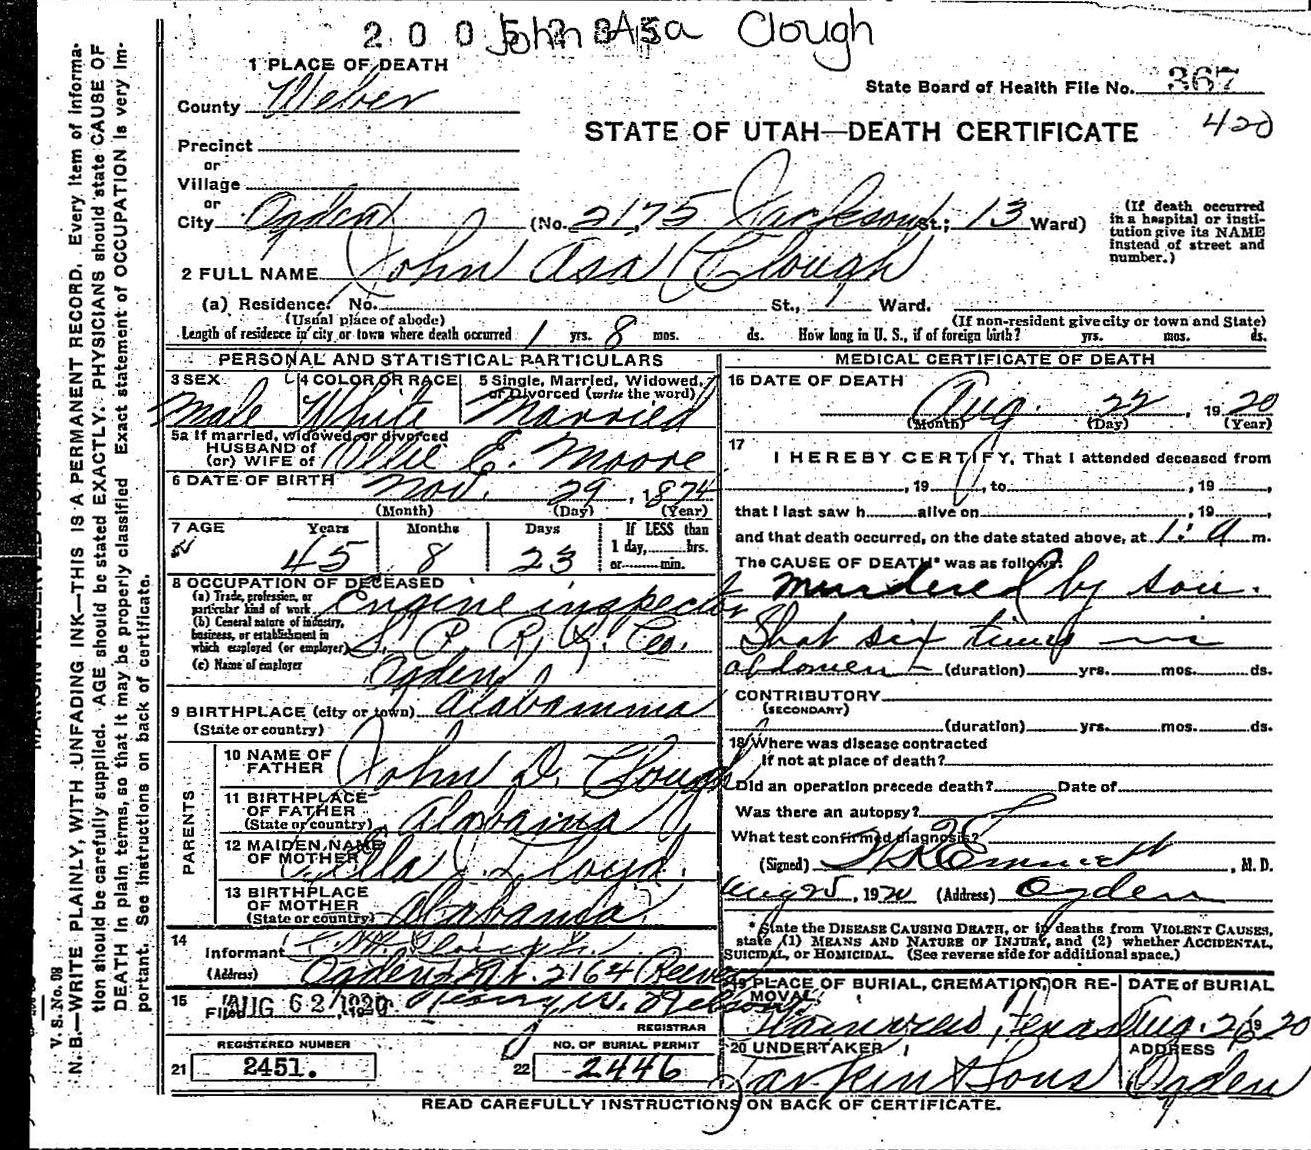 John Asa Clough
1 PLACE OF DEATH
County Weber
State Board of Health File No. 367
420
STATE OF UTAH—DEATH CERTIFICATE
Precinct
or
Village
or
City Ogden (No. 2175 Jackson St.; 13 Ward)
(If death occurred in a hospital or institution give its NAME instead of street and number.)
2 FULL NAME John Asa Clough
(a) Residence. No. St., Ward.
(Usual place of abode) (If non-resident give city or town and State)
Length of residence in city or town where death occurred 1 yrs. 8 mos. ds. How long in U. S., if of foreign birth? yrs. mos. ds.
PERSONAL AND STATISTICAL PARTICULARS
3 SEX Male
4 COLOR OR RACE White
5 Single, Married, Widowed, or Divorced (write the word) Married
5a If married, widowed, or divorced
HUSBAND of
(or) WIFE of Ollie E. Moore
6 DATE OF BIRTH Nov. 29, 1874
(Month) (Day) (Year)
7 AGE Years Months Days If LESS than
45 8 23 1 day, hrs.
or min.
8 OCCUPATION OF DECEASED
(a) Trade, profession, or particular kind of work Engine inspector
(b) General nature of industry, business, or establishment in which employed (or employer) S. P. R. R. Co.
(c) Name of employer Ogden
9 BIRTHPLACE (city or town) Alabamma
(State or country)
PARENTS
10 NAME OF FATHER John D. Clough
11 BIRTHPLACE OF FATHER (State or country) Alabama
12 MAIDEN NAME OF MOTHER Ella J. Lloyd
13 BIRTHPLACE OF MOTHER (State or country) Alabama
14 Informant
(Address) Ogden 2164 Reeves
15 Filed AUG 1920 Henry W. Nelson
REGISTRAR
21 REGISTERED NUMBER 2451.
22 NO. OF BURIAL PERMIT 2446
MEDICAL CERTIFICATE OF DEATH
16 DATE OF DEATH
Aug. 22, 1920
(Month) (Day) (Year)
17
I HEREBY CERTIFY, That I attended deceased from
, 19 , to , 19 ,
that I last saw h alive on , 19 ,
and that death occurred, on the date stated above, at 1: a m.
The CAUSE OF DEATH* was as follows:
Murdered by son.
Shot six times in
abdomen (duration) yrs. mos. ds.
CONTRIBUTORY
(SECONDARY)
(duration) yrs. mos. ds.
18 Where was disease contracted
If not at place of death?
Did an operation precede death? Date of
Was there an autopsy?
What test confirmed diagnosis?
(Signed) Emmett, M. D.
Aug 25, 1920 (Address) Ogden
* State the DISEASE CAUSING DEATH, or in deaths from VIOLENT CAUSES, state (1) MEANS AND NATURE OF INJURY, and (2) whether ACCIDENTAL, SUICIDAL, or HOMICIDAL. (See reverse side for additional space.)
19 PLACE OF BURIAL, CREMATION, OR REMOVAL
Texas
DATE OF BURIAL
Aug. 26 1920
20 UNDERTAKER
Larkin & Sons
ADDRESS
Ogden
READ CAREFULLY INSTRUCTIONS ON BACK OF CERTIFICATE.
V. S. No. 98
N. B.—WRITE PLAINLY, WITH UNFADING INK—THIS IS A PERMANENT RECORD. Every item of information should be carefully supplied. AGE should be stated EXACTLY. PHYSICIANS should state CAUSE OF DEATH in plain terms, so that it may be properly classified. Exact statement of OCCUPATION is very important. See instructions on back of certificate.